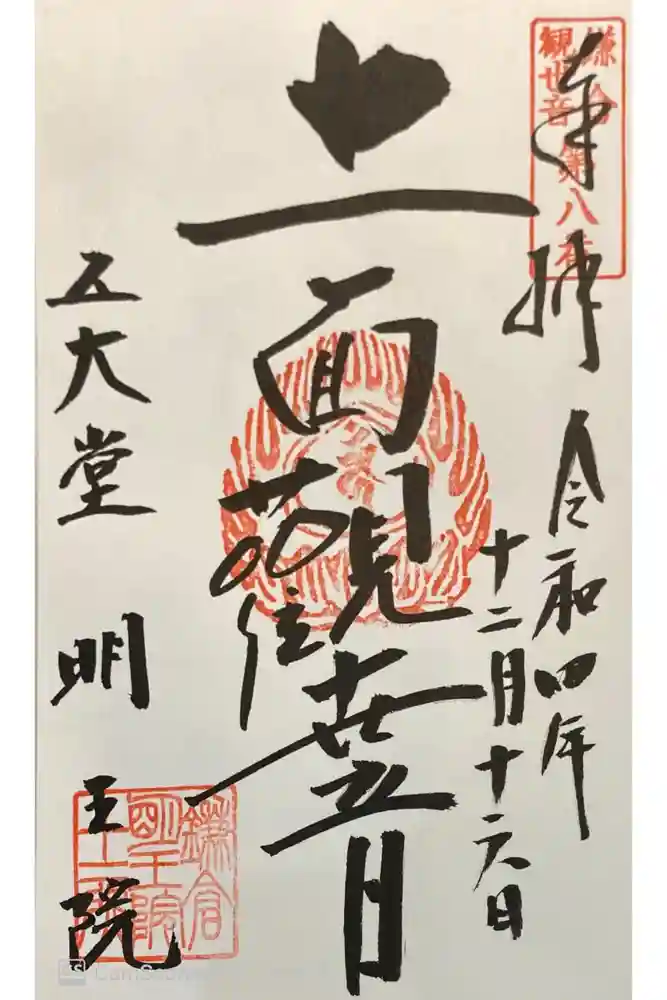 鎌倉
観世音
第八番
奉拝
令和四年
十二月十六日
十一面観世音
五大堂
明
王
院
鎌倉
明王院
CamScanner